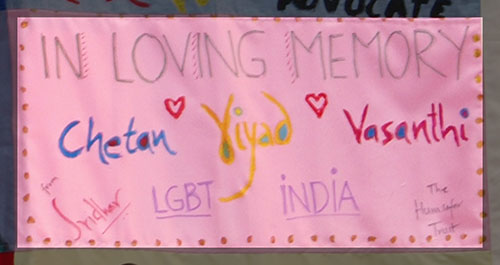 ADVOCATE
IN LOVING MEMORY
Chetan Viyad Vasanthi
from
Sridhar
LGBT INDIA
The
Humsafar
Trust